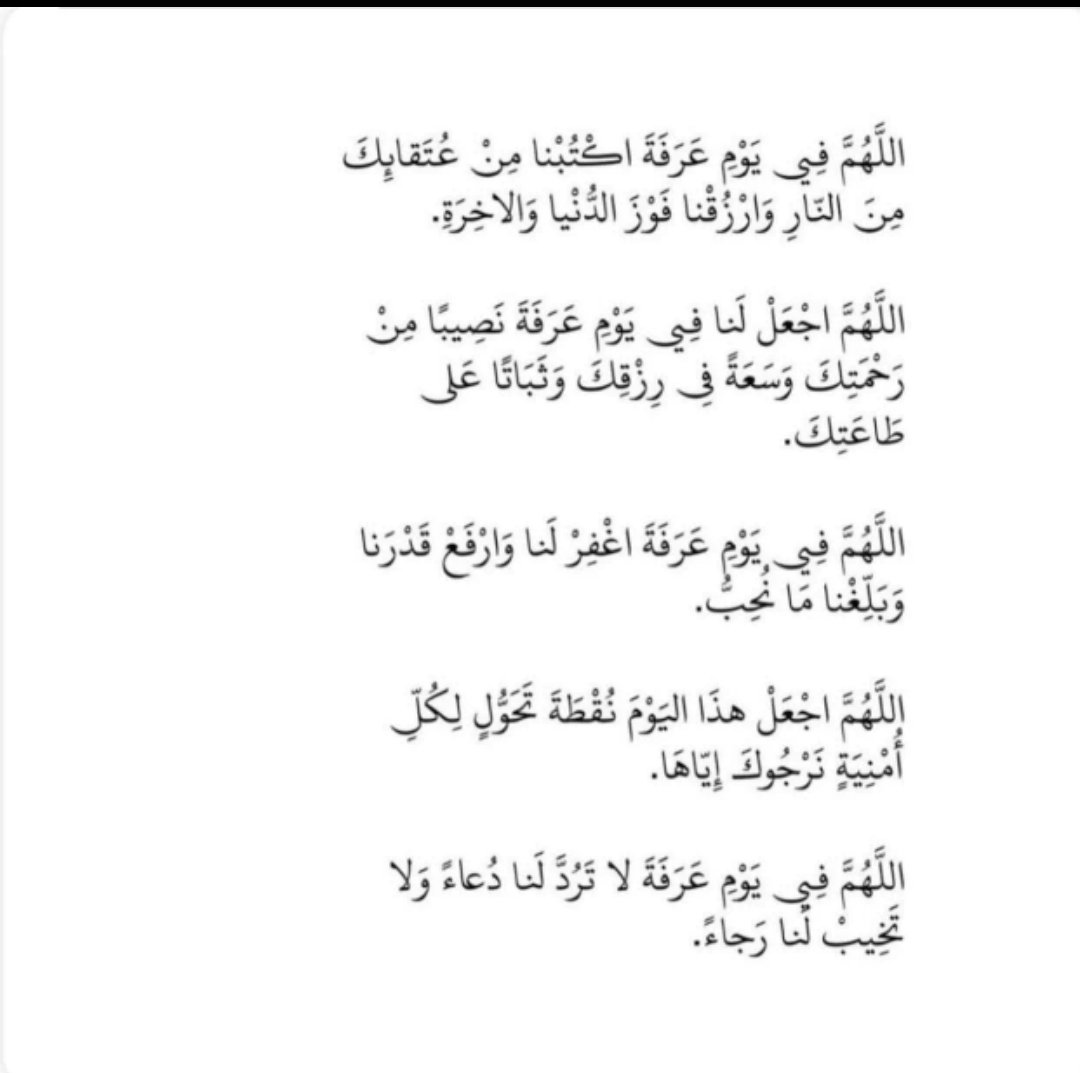 اللَّهُمَّ فِيي يَوْمِ عَرَفَةَ اكْتُبْنا مِنْ عُتَقايِكَ
مِنَ النّارِ وَارْزُقْنا فَوْزَ الدُّنْيا وَالاخِرَةِ.
اللَّهُمَّ اجْعَلْ لَنا فِيي يَوْمِ عَرَفَةَ نَصِيبًا مِنْ
رَحْمَتِكَ وَسَعَةً فِي رِزْقِكَ وَثَبَاتًا عَلى
طَاعَتِكَ.
اللَّهُمَّ فِيي يَوْمِ عَرَفَةَ اغْفِرْ لَنا وَارْفَعْ قَدْرَنا
وَبَلِّغْنا مَا نُحِبُّ.
اللَّهُمَّ اجْعَلْ هذَا اليَوْمَ نُقْطَةَ تَحَوُّلٍ لِكُلِّ
أُمْنِيَةٍ نَرْجُوكَ إِيّاهَا.
اللَّهُمَّ فِيي يَوْمِ عَرَفَةَ لا تَرُدَّ لَنا دُعاءً وَلا
تَخِيبْ لَنا رَجاءً.